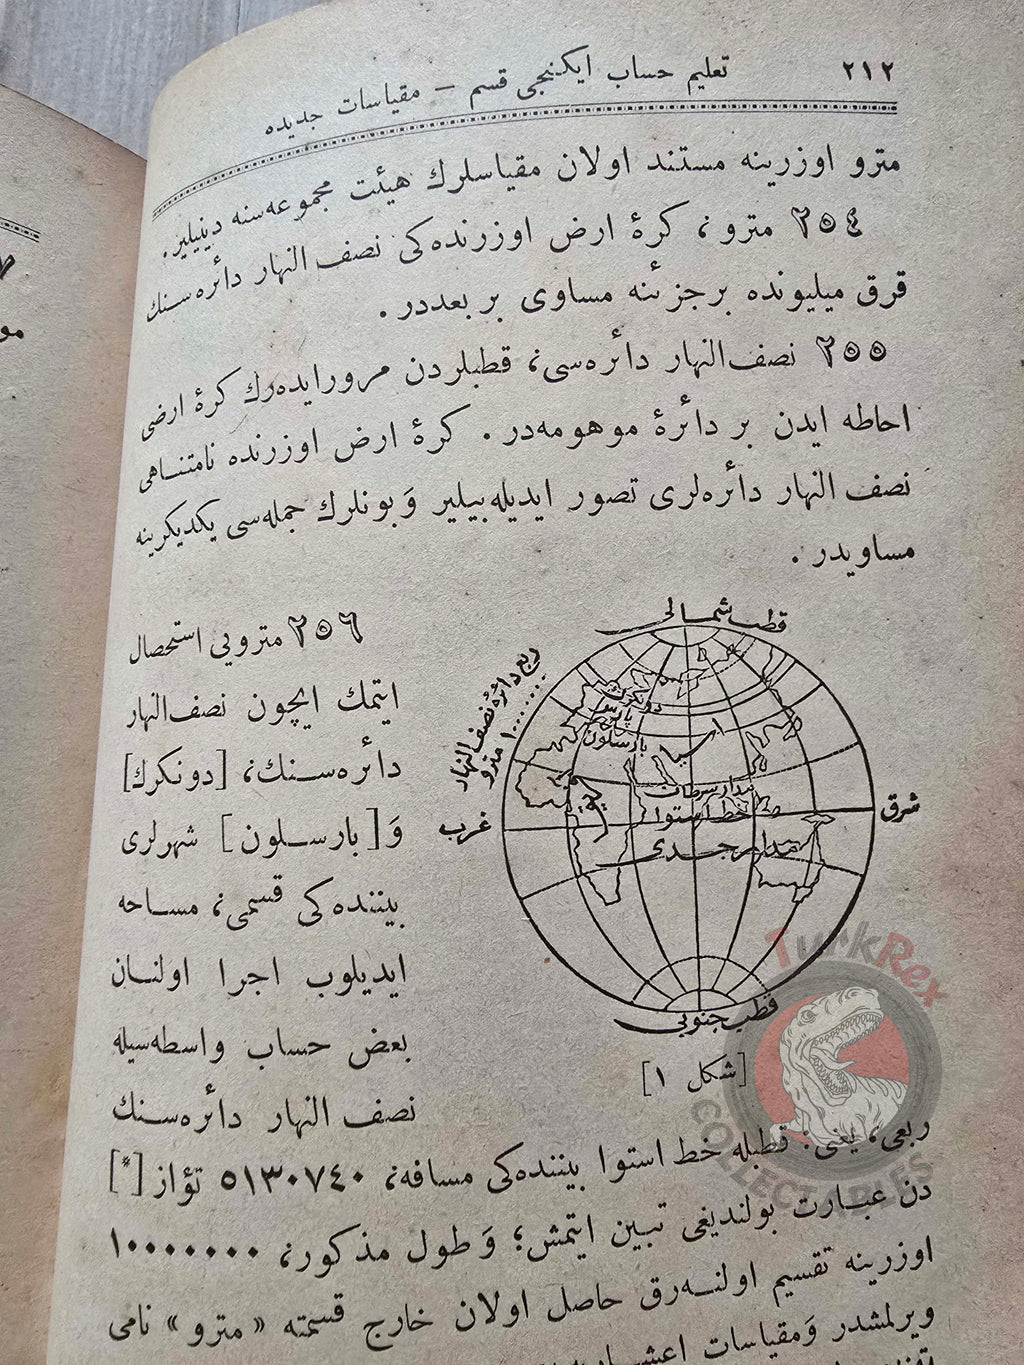 ٢١٢
تعليم حساب ايكنجى قسم — مقياسات جديده
مترو اوزرينه مستند اولان مقياسلرك هيئت مجموعه‌سنه دينيلير.
٢٥٤ مترو، كرۀ ارض اوزرنده‌كى نصف النهار دائره‌سنك
قرق ميليونده برجزئنه مساوى بر بعددر.
٢٥٥ نصف‌النهار دائره‌سى، قطبلردن مرورايده‌رك كرۀ ارضى
احاطه ايدن بر دائرۀ موهومه‌در. كرۀ ارض اوزرنده نامتناهى
نصف النهار دائره‌لرى تصور ايديله‌بيلير وَبونلرك جمله‌سى يكديكرينه
مساويدر.
٢٥٦ مترويى استحصال
ايتمك ايچون نصف‌النهار
دائره‌سنك، [دونكرك]
وَ[بارسلون] شهرلرى
بيننده‌كى قسمى، مساحه
ايديلوب اجرا اولنان
بعض حساب واسطه‌سيله
نصف النهار دائره‌سنك
قطب شمالى
ربع دائرۀ نصف‌النهار
١٠٠٠٠٠٠٠ مترو
دونكرك
پارس
بارسلون
آسيا
مدار سرطان
خط استوا
مدار جدى
شرق
غرب
قطب جنوبى
[شكل ١]
ربعى، يعنى: قطبله خط استوا بيننده‌كى مسافه، ٥١٣٠٧٤٠ تؤاز[*]
دن عبارت بولنديغى تبين ايتمش؛ وَطول مذكور، ١٠٠٠٠٠٠٠
اوزرينه تقسيم اولنه‌رق حاصل اولان خارج قسمته «مترو» نامى
ويرلمشدر وَمقياسات
TurkRex
COLLECTIBLES